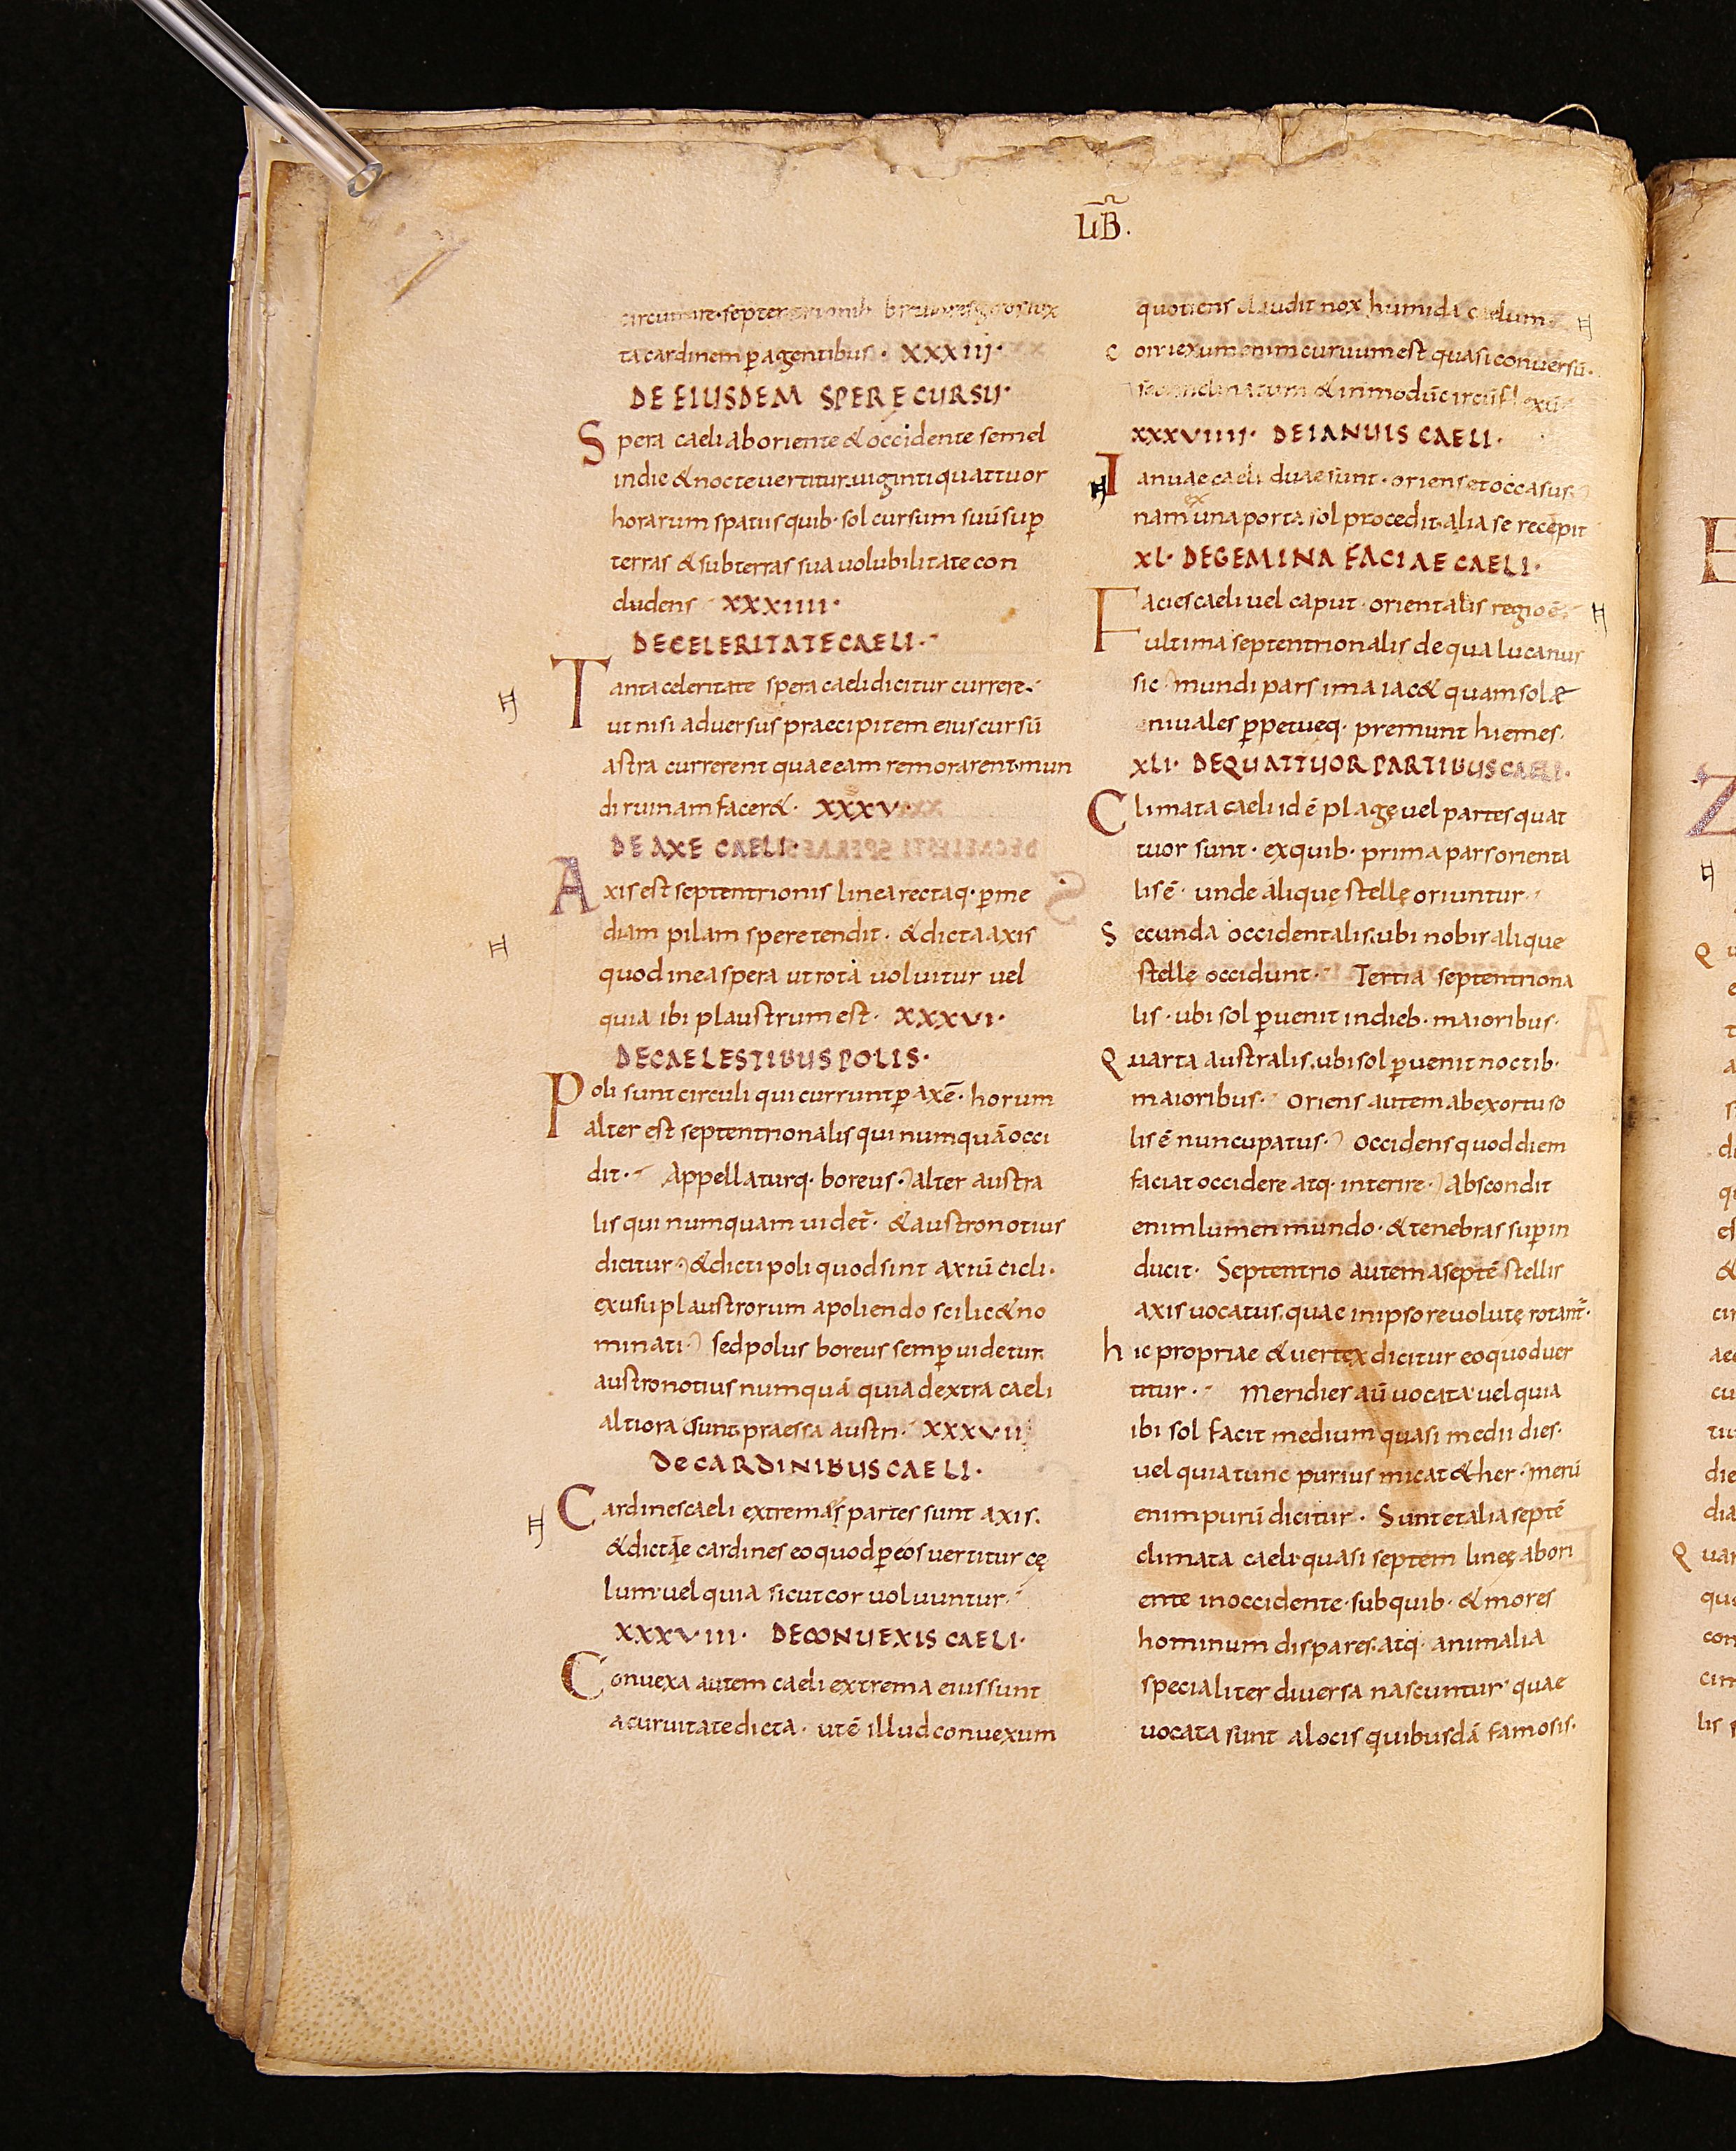 LIB.
circumire septentrionib breuiores iux
ta cardinem ꝑagentibus · XXXIII·
DE EIUSDEM SPERE CURSU·
Spera caeli ab oriente & occidente semel
in die & nocte uertitur. uiginti quattuor
horarum spatiis quib· sol cursum suū suꝑ
terras & sub terras sua uolubilitate con
cludens XXXIIII·
DE CELERITATE CAELI·
Tanta celeritate spera caeli dicitur currere·
ut nisi aduersus praecipitem eius cursū
astra currerent quae eam remorarent. mun
di ruinam facer&· XXXV·
DE AXE CAELI·
Axis est septentrionis linea recta q· ꝑ me
diam pilam spere tendit· & dicta axis
quod in ea spera ut rota uoluitur uel
quia ibi plaustrum est· XXXVI·
DE CAELESTIBUS POLIS·
Poli sunt circuli qui currunt ꝑ axē· horum
alter est septentrionalis qui numquā occi
dit· Appellaturq· boreus· alter austra
lis qui numquam uidet̄· & austronotius
dicitur & dicti poli quod sint axiū cicli·
ex usu plaustrorum a poliendo scilic& no
minati· sed polus boreus semꝑ uidetur
austronotius numquā quia dextra caeli
altiora sunt. praessa austri· XXXVII
DE CARDINIBUS CAELI·
Cardines caeli extremas partes sunt axis.
& dictae cardines eo quod ꝑ eos uertitur cę
lum. uel quia sicut cor uoluuntur·
XXXVIII· DE CONUEXIS CAELI·
Conuexa autem caeli extrema eius sunt
a curuitate dicta· ut ē illud conuexum
quotiens cludit nox humida caelum
Conuexum enim curuum est quasi conuersū·
seu inclinatum & in modū circūflexū
XXXVIIII· DE IANUIS CAELI·
Ianuae caeli duae sunt· oriens et occasus
ex
nam una porta sol procedit. alia se recepit
XL· DE GEMINA FACIAE CAELI·
Facies caeli uel caput· orientalis regio ē
ultima septentrionalis de qua lucanus
sic mundi pars ima iac& quam sol&
niuales ꝑpetueq· premunt hiemes.
XLI· DE QUATTUOR PARTIBUS CAELI·
Climata caeli id ē plagę uel partes quat
tuor sunt· ex quib· prima pars orienta
lis ē· unde aliquę stellę oriuntur·
Secunda occidentalis. ubi nobis alique
stellę occidunt· Tertia septentriona
lis· ubi sol ꝑuenit in dieb· maioribus·
Quarta australis. ubi sol ꝑuenit noctib·
maioribus· Oriens autem ab exortu so
lis ē nuncupatus· Occidens quod diem
faciat occidere atq· interire· Abscondit
enim lumen mundo· & tenebras suꝑ in
ducit· Septentrio autem a septē stellis
axis uocatus. quae in ipso reuolutę rotant̄·
hic propriae & uertex dicitur eo quod uer
titur· Meridies aū uocata uel quia
ibi sol facit medium quasi medii dies·
uel quia tunc purius micat &her· merū
enim purū dicitur· Sunt et alia septē
climata caeli quasi septem lineę ab ori
ente in occidente· sub quib· & mores
hominum dispares. atq· animalia
specialiter diuersa nascuntur· quae
uocata sunt a locis quibusdā famosis·